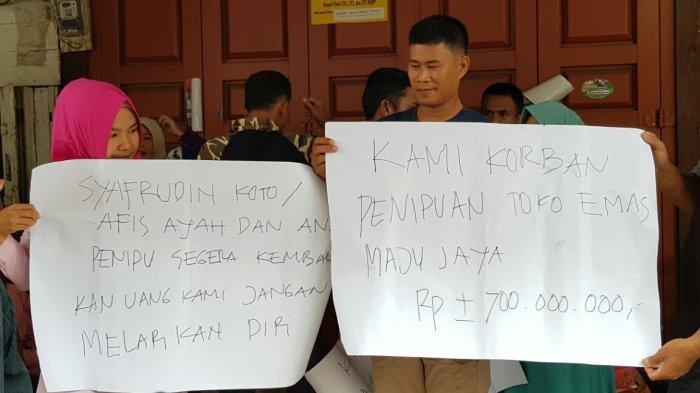 SYAFRUDIN KOTO /
AFIS AYAH DAN
PENIPU SEGERA
KAN UANG KAMI JANGAN
MELARIKAN DIRI
KAMI KORBAN
PENIPUAN TOKO EMAS
MAJU JAYA
Rp ± 700.000.000,-